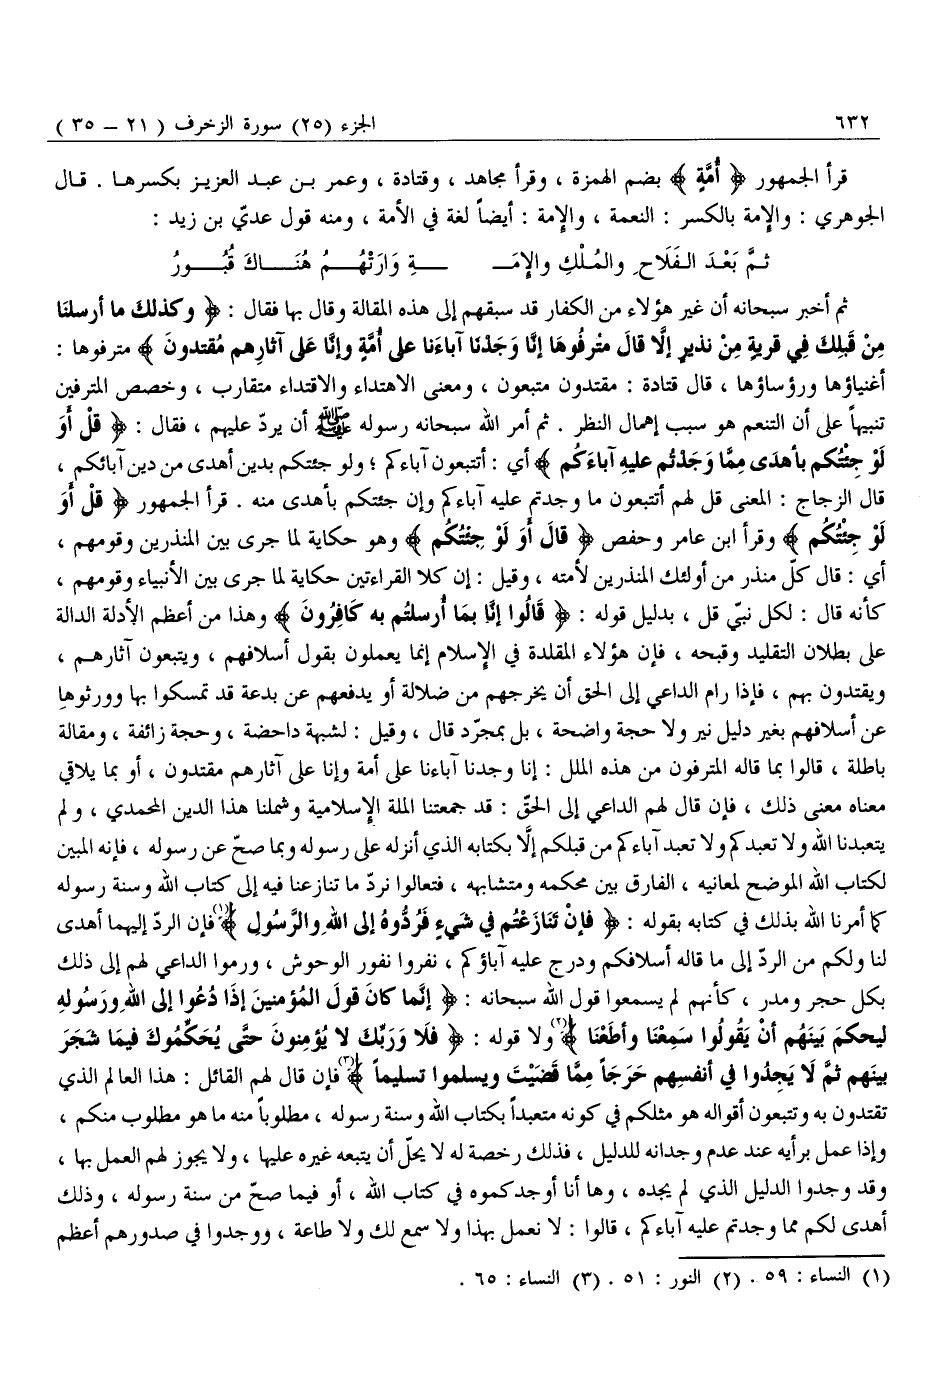 ٦٣٢ الجزء (٢٥) سورة الزخرف ( ٢١ – ٣٥ )
قرأ الجمهور ﴿ أُمَّةٍ ﴾ بضم الهمزة ، وقرأ مجاهد ، وقتادة ، وعمر بن عبد العزيز بكسرها . قال
الجوهري : والإمة بالكسر : النعمة ، والإمة : أيضاً لغة في الأمة ، ومنه قول عديّ بن زيد :
ثمَّ بَعْدَ الفَلَاحِ والمُلْكِ والإمَـــةِ وَارَتْهُـمْ هُنَـاكَ قُبُـورُ
ثم أخبر سبحانه أن غير هؤلاء من الكفار قد سبقهم إلى هذه المقالة وقال بها فقال : ﴿ وكذلك ما أرسلنَا
مِنْ قَبلِكَ فِي قريةٍ مِنْ نذيرٍ إلَّا قالَ مترفُوهَا إنَّا وَجَدْنَا آباءَنا على أُمَّةٍ وإنَّا عَلى آثارِهم مُقتدونَ ﴾ مترفوها :
أغنياؤها ورؤساؤها ، قال قتادة : مقتدون متبعون ، ومعنى الاهتداء والاقتداء متقارب ، وخصص المترفين
تنبيهاً على أن التنعم هو سبب إهمال النظر . ثم أمر الله سبحانه رسوله ﷺ أن يردّ عليهم ، فقال : ﴿ قلْ أَوَ
لَوْ جِئتُكم بأهدَى مِمَّا وَجَدْتُم عليهِ آباءَكُم ﴾ أي : أتتبعون آباءكم ؛ ولو جئتكم بدين أهدى من دين آبائكم ،
قال الزجاج : المعنى قل لهم أتتبعون ما وجدتم عليه آباءكم وإن جئتكم بأهدى منه . قرأ الجمهور ﴿ قلْ أَوَ
لَوْ جِئْتُكُم ﴾ وقرأ ابن عامر وحفص ﴿ قالَ أَوَ لَوْ جِئتُكُم ﴾ وهو حكاية لما جرى بين المنذرين وقومهم ،
أي : قال كلّ منذر من أولئك المنذرين لأمته ، وقيل : إن كلا القراءتين حكاية لما جرى بين الأنبياء وقومهم ،
كأنه قال : لكل نبيّ قل ، بدليل قوله : ﴿ قَالُوا إنَّا بمَا أُرسلتُم به كافِرُونَ ﴾ وهذا من أعظم الأدلة الدالة
على بطلان التقليد وقبحه ، فإن هؤلاء المقلدة في الإسلام إنما يعملون بقول أسلافهم ، ويتبعون آثارهم ،
ويقتدون بهم ، فإذا رام الداعي إلى الحق أن يخرجهم من ضلالة أو يدفعهم عن بدعة قد تمسكوا بها وورثوها
عن أسلافهم بغير دليل نير ولا حجة واضحة ، بل بمجرّد قال ، وقيل : لشبهة داحضة ، وحجة زائفة ، ومقالة
باطلة ، قالوا بما قاله المترفون من هذه الملل : إنا وجدنا آباءنا على أمة وإنا على آثارهم مقتدون ، أو بما يلاقي
معناه معنى ذلك ، فإن قال لهم الداعي إلى الحقّ : قد جمعتنا الملة الإسلامية وشملنا هذا الدين المحمدي ، ولم
يتعبدنا الله ولا تعبدكم ولا تعبد آباءكم من قبلكم إلّا بكتابه الذي أنزله على رسوله وبما صحّ عن رسوله ، فإنه المبين
لكتاب الله الموضح لمعانيه ، الفارق بين محكمه ومتشابهه ، فتعالوا نردّ ما تنازعنا فيه إلى كتاب الله وسنة رسوله
كما أمرنا الله بذلك في كتابه بقوله : ﴿ فإنْ تَنَازَعْتُم في شيءٍ فَرُدُّوهُ إلى اللهِ والرَّسولِ ﴾(١) فإن الردّ إليهما أهدى
لنا ولكم من الردّ إلى ما قاله أسلافكم ودرج عليه آباؤكم ، نفروا نفور الوحوش ، ورموا الداعي لهم إلى ذلك
بكل حجر ومدر ، كأنهم لم يسمعوا قول الله سبحانه : ﴿ إنَّما كانَ قولَ المُؤمنينَ إذَا دُعُوا إلى اللهِ ورَسُولهِ
ليحكمَ بَينَهُم أنْ يَقُولُوا سَمِعْنَا وأطَعْنَا ﴾(٢) ولا قوله : ﴿ فلَا وَرَبِّكَ لَا يُؤمِنونَ حتَّى يُحَكِّمُوكَ فيمَا شَجَرَ
بينَهم ثمَّ لَا يَجِدُوا في أنفسِهم حَرَجَاً مِمَّا قَضَيْتَ ويسلموا تسليماً ﴾(٣) فإن قال لهم القائل : هذا العالم الذي
تقتدون به وتتبعون أقواله هو مثلكم في كونه متعبداً بكتاب الله وسنة رسوله ، مطلوباً منه ما هو مطلوب منكم ،
وإذا عمل برأيه عند عدم وجدانه للدليل ، فذلك رخصة له لا يحلّ أن يتبعه غيره عليها ، ولا يجوز لهم العمل بها ،
وقد وجدوا الدليل الذي لم يجده ، وها أنا أوجدكموه في كتاب الله ، أو فيما صحّ من سنة رسوله ، وذلك
أهدى لكم مما وجدتم عليه آباءكم ، قالوا : لا نعمل بهذا ولا سمع لك ولا طاعة ، ووجدوا في صدورهم أعظم
(١) النساء : ٥٩ . (٢) النور : ٥١ . (٣) النساء : ٦٥ .